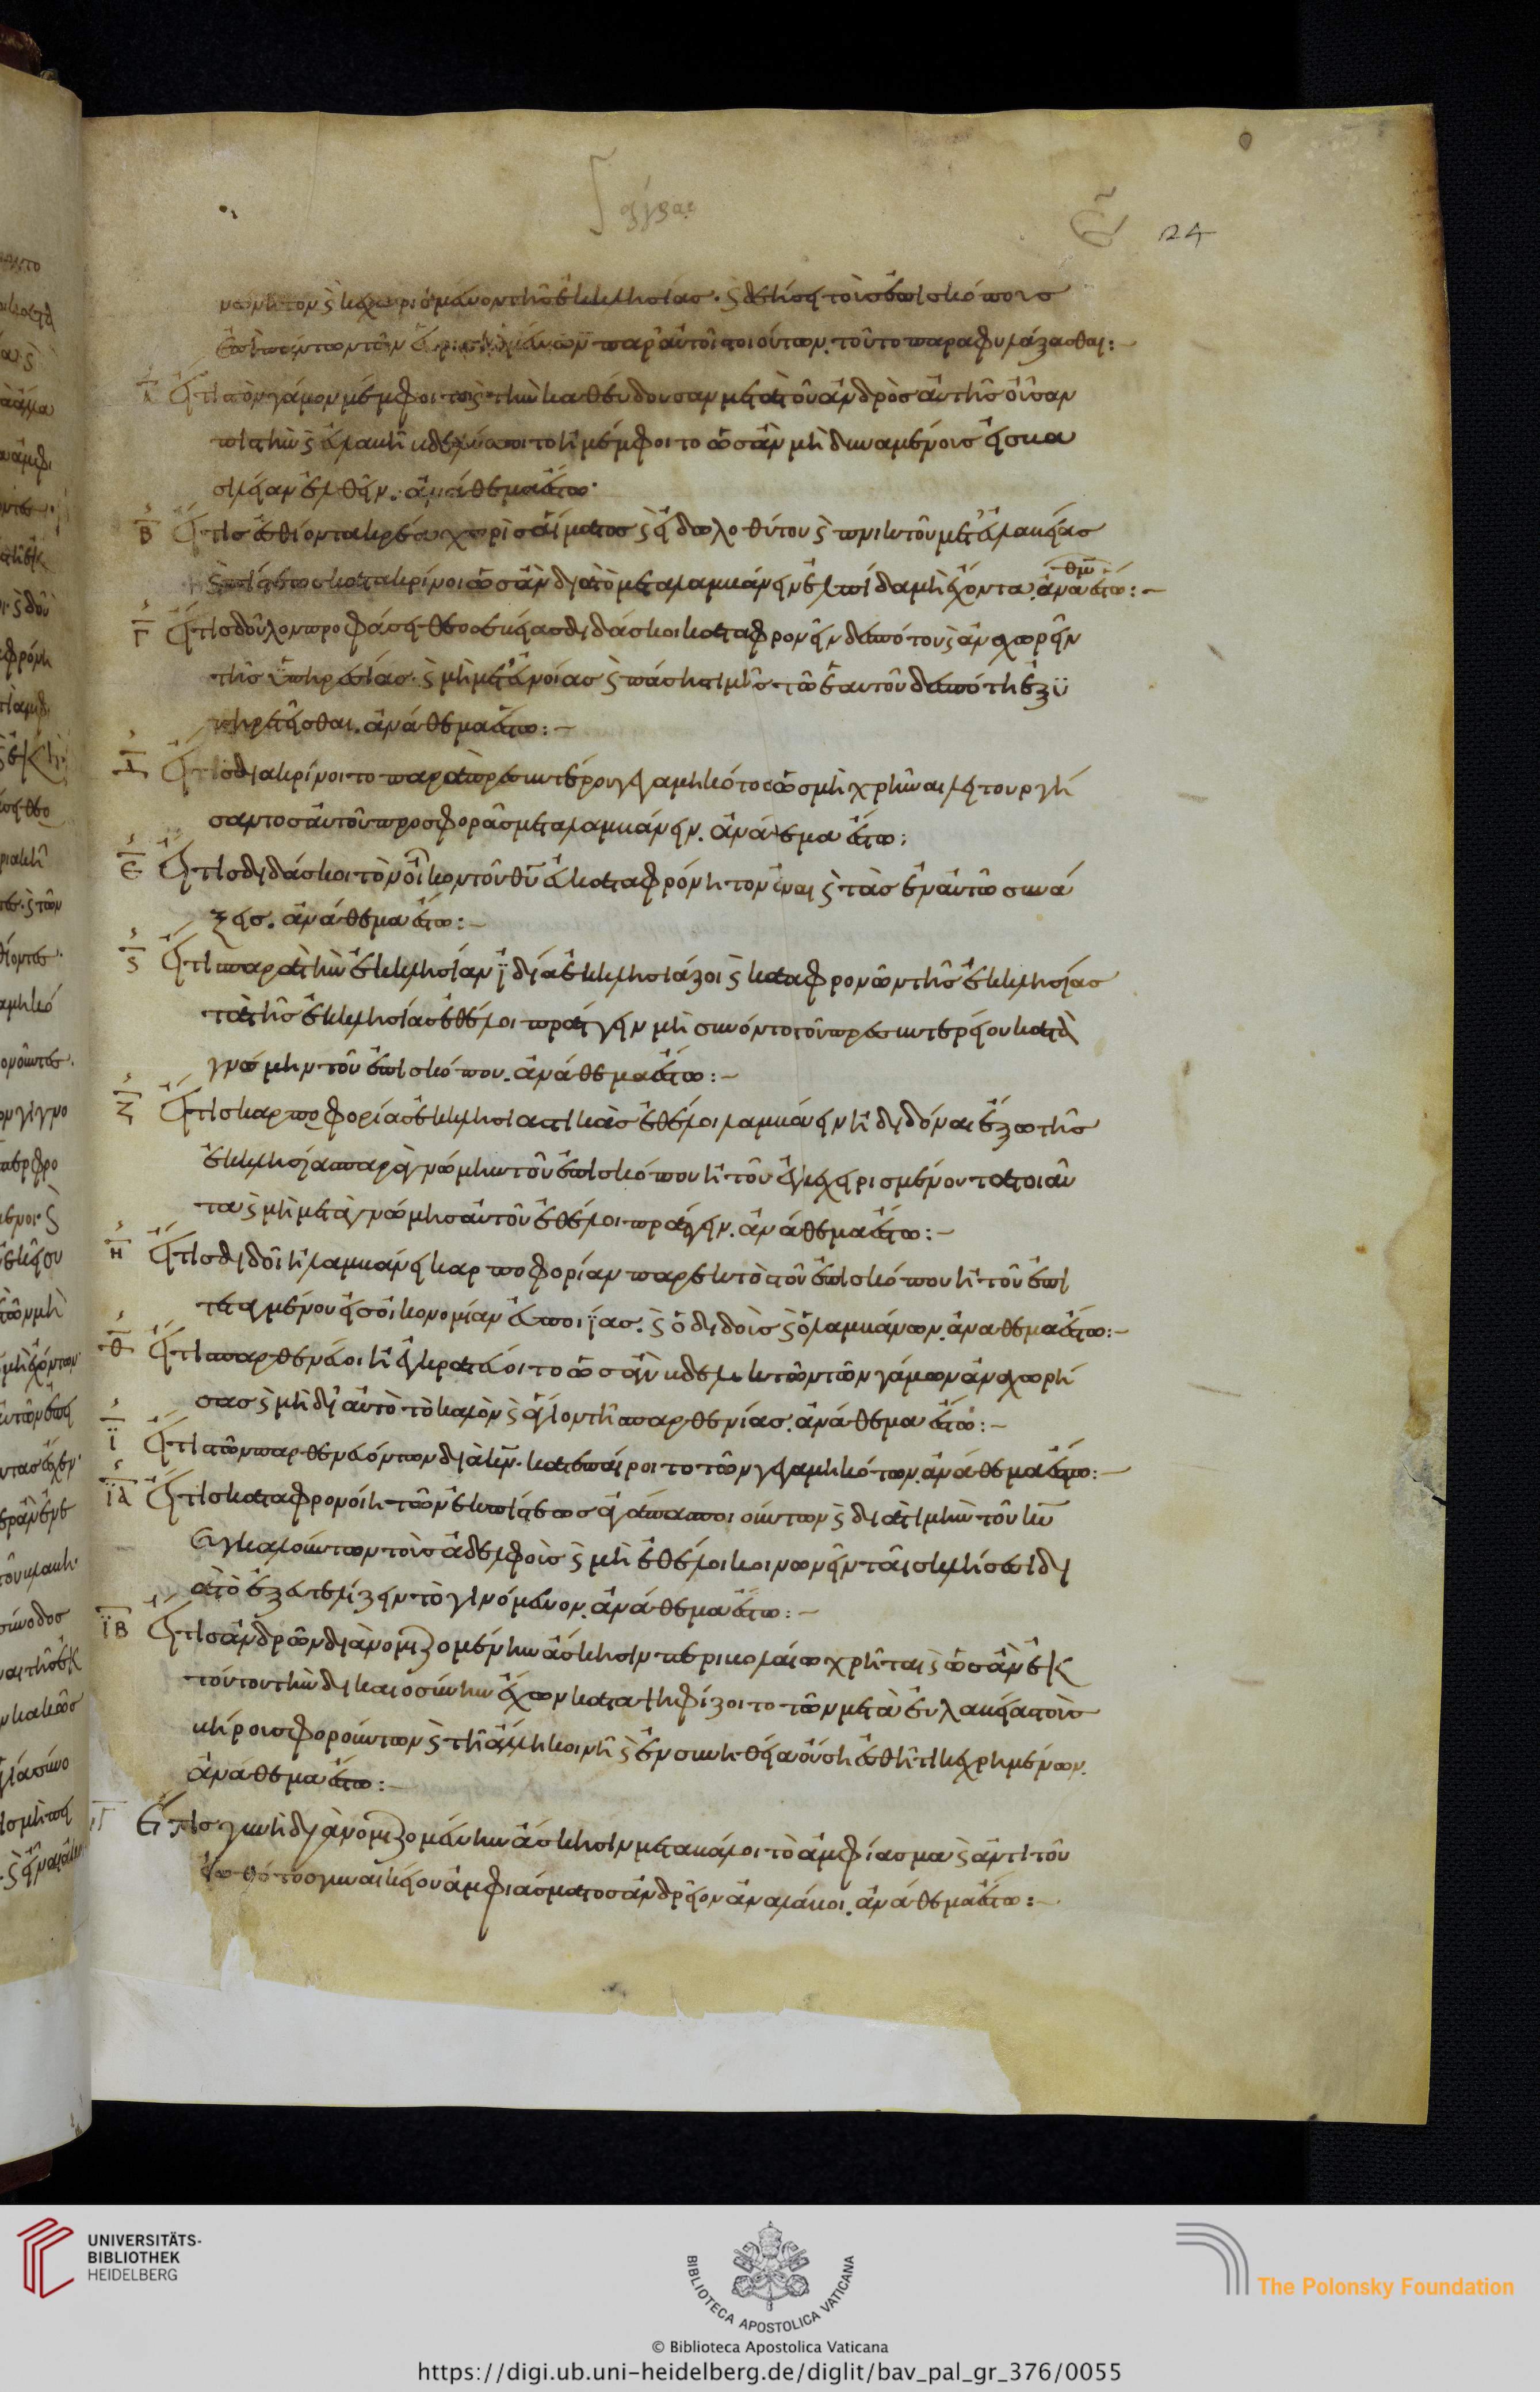 24
κεχωρισμένον τῆς ἐκκλησίας. δεήσει τοὺς ἐπισκόπους
ἐπὶ πάντων τῶν εὑρισκομένων παρ' αὐτοῖς τοιούτων. τοῦτο παραφυλάξασθαι:
Α Εἴ τις τὸν γάμον μέμφοιτο ϛ τὴν καθεύδουσαν μετὰ τοῦ ἀνδρὸς αὐτῆς οὖσαν
πιστὴν ϛ εὐλαβῆ βδελύσσοιτο ἢ μέμφοιτο ὡς ἂν μὴ δυναμένοις εἰς βα
σιλείαν ἐλθεῖν. ἀνάθεμα ἔστω.
Β Εἴ τις ἐσθίοντα κρέα χωρὶς αἵματος ϛ εἰδωλοθύτου ϛ πνικτοῦ μετ' εὐλαβείας
ϛ πίστεως κατακρίνοι ὡς ἂν διὰ τὸ μεταλαμβάνειν ἐλπίδα μὴ ἔχοντα. ἀνάθεμα ἔστω:
Γ Εἴ τις δοῦλον προφάσει θεοσεβείας διδάσκοι καταφρονεῖν δεσπότου ϛ ἀναχωρεῖν
τῆς ὑπηρεσίας. ϛ μὴ μετ' εὐνοίας ϛ πάσης τιμῆς τῷ ἑαυτοῦ δεσπότῃ ἐξυ
πηρετεῖσθαι. ἀνάθεμα ἔστω:
Δ Εἴ τις διακρίνοιτο παρὰ πρεσβυτέρου γεγαμηκότος ὡς μὴ χρῆναι λειτουργή
σαντος αὐτοῦ προσφορᾶς μεταλαμβάνειν. ἀνάθεμα ἔστω:
Ε Εἴ τις διδάσκοι τὸν οἶκον τοῦ θυ εὐκαταφρόνητον εἶναι ϛ τὰς ἐν αὐτῷ συνά
ξεις. ἀνάθεμα ἔστω:
Ϛ Εἴ τις παρὰ τὴν ἐκκλησίαν ἰδίᾳ ἐκκλησιάζοι ϛ καταφρονῶν τῆς ἐκκλησίας
τὰ τῆς ἐκκλησίας ἐθέλοι πράττειν μὴ συνόντος τοῦ πρεσβυτερίου κατὰ
γνώμην τοῦ ἐπισκόπου. ἀνάθεμα ἔστω:
Ζ Εἴ τις καρποφορίας ἐκκλησιαστικὰς ἐθέλοι λαμβάνειν ἢ διδόναι ἔξω τῆς
ἐκκλησίας παρὰ γνώμην τοῦ ἐπισκόπου ἢ τοῦ ἐγκεχειρισμένου τὰ τοιαῦ
τα ϛ μὴ μετὰ γνώμης αὐτοῦ ἐθέλοι πράττειν. ἀνάθεμα ἔστω:
Η Εἴ τις διδοῖ ἢ λαμβάνει καρποφορίαν παρεκτὸς τοῦ ἐπισκόπου ἢ τοῦ ἐπι
τεταγμένου εἰς οἰκονομίαν εὐποιΐας. ϛ ὁ διδοὺς ϛ ὁ λαμβάνων. ἀνάθεμα ἔστω:
Θ Εἴ τις παρθενεύοι ἢ ἐγκρατεύοιτο ὡς ἂν βδελυκτῶν τῶν γάμων ἀναχωρή
σας ϛ μὴ δι' αὐτὸ τὸ καλὸν ϛ ἅγιον τῆς παρθενίας. ἀνάθεμα ἔστω:
Ι Εἴ τις τῶν παρθενευόντων διὰ κν. κατεπαίροιτο τῶν γεγαμηκότων. ἀνάθεμα ἔστω:
ΙΑ Εἴ τις καταφρονοίη τῶν ἐκ πίστεως ἀγάπας ποιούντων ϛ διὰ τιμὴν τοῦ κυ
συγκαλούντων τοὺς ἀδελφοὺς ϛ μὴ ἐθέλοι κοινωνεῖν ταῖς κλήσεσι δι
ὰ τὸ ἐξευτελίζειν τὸ γινόμενον. ἀνάθεμα ἔστω:
ΙΒ Εἴ τις ἀνδρῶν διὰ νομιζομένην ἄσκησιν περιβολαίῳ χρῆται ϛ ὡς ἂν ἐκ
τούτου τὴν δικαιοσύνην ἔχων καταψηφίζοιτο τῶν μετὰ εὐλαβείας τοὺς
βήρους φορούντων ϛ τῇ ἄλλῃ κοινῇ ϛ ἐν συνηθείᾳ οὔσῃ ἐσθῆτι κεχρημένων.
ἀνάθεμα ἔστω:
ΙΓ Εἴ τις γυνὴ διὰ νομιζομένην ἄσκησιν μεταβάλοι τὸ ἀμφίασμα ϛ ἀντὶ τοῦ
εἰωθότος γυναικείου ἀμφιάσματος ἀνδρεῖον ἀναλάβοι. ἀνάθεμα ἔστω:
UNIVERSITÄTS-
BIBLIOTHEK
HEIDELBERG
BIBLIOTECA APOSTOLICA VATICANA
The Polonsky Foundation
© Biblioteca Apostolica Vaticana
https://digi.ub.uni-heidelberg.de/diglit/bav_pal_gr_376/0055